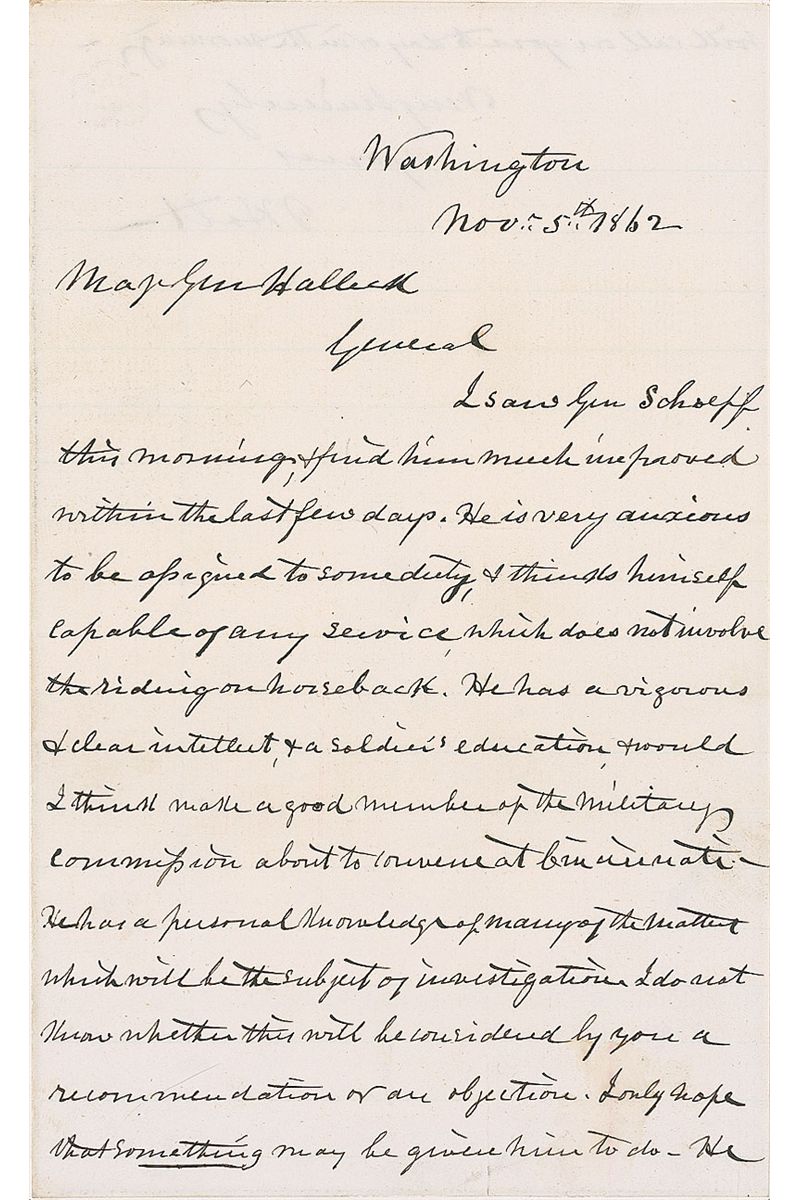 Washington
Nov.r 5th. 1862
Maj Gen Halleck
General
I saw Gen Schoepf
this morning, & find him much improved
within the last few days. He is very anxious
to be assigned to some duty, & thinks himself
capable of any service, which does not involve
the riding on horseback. He has a vigorous
& clear intellect, & a soldier's education, & would
I think make a good member of the military
commission about to convene at Cincinnati. –
He has a personal knowledge of many of the matters
which will be the subject of investigation. I do not
know whether this will be considered by you a
recommendation or an objection. I only hope
that something may be given him to do – He